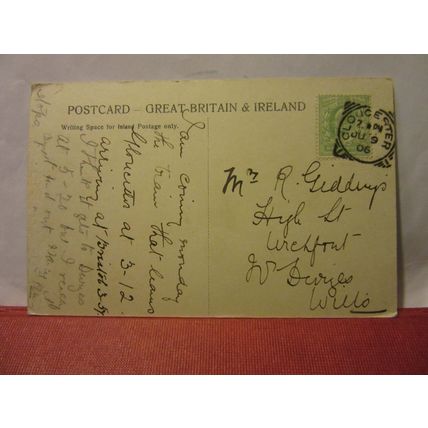 POSTCARD – GREAT BRITAIN & IRELAND
Writing Space for Inland Postage only.
I am coming monday
the train that leaves
Gloucester at 3-12.
arriving at Bristol 3-59
I think I get to Devizes
at 5-20 but I
GLOUCESTER
JU 9
06
Mr R. Giddings
High St
Urchfont
Nr Devizes
Wilts